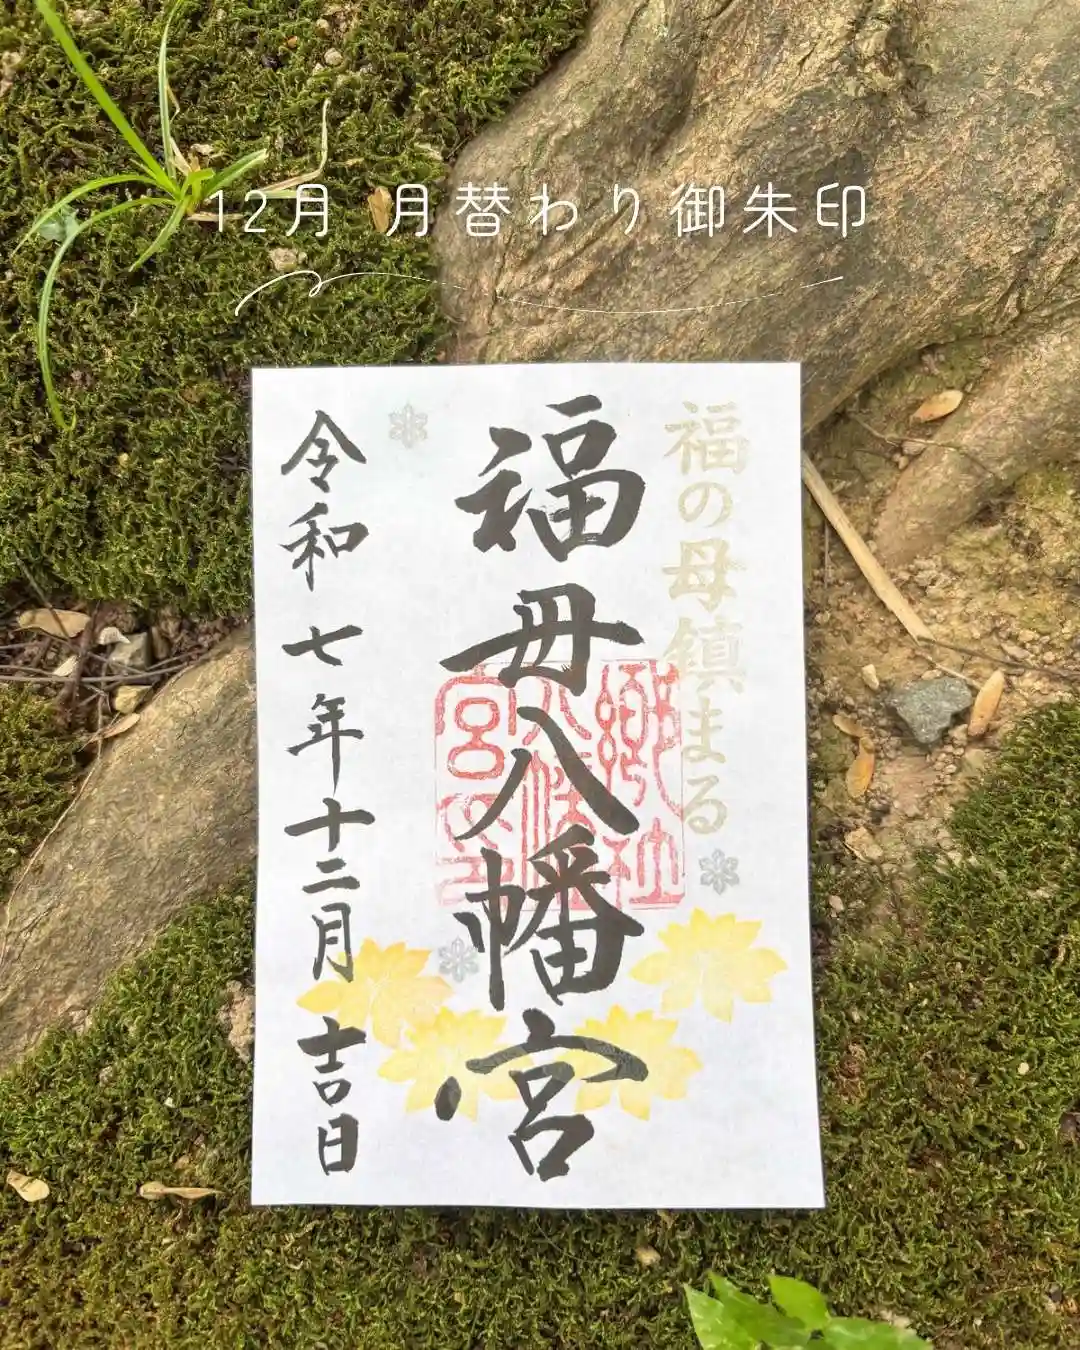 12月 月替わり御朱印
福の母鎮まる
福母八幡宮
郷社
八幡
宮印
令和七年十二月吉日